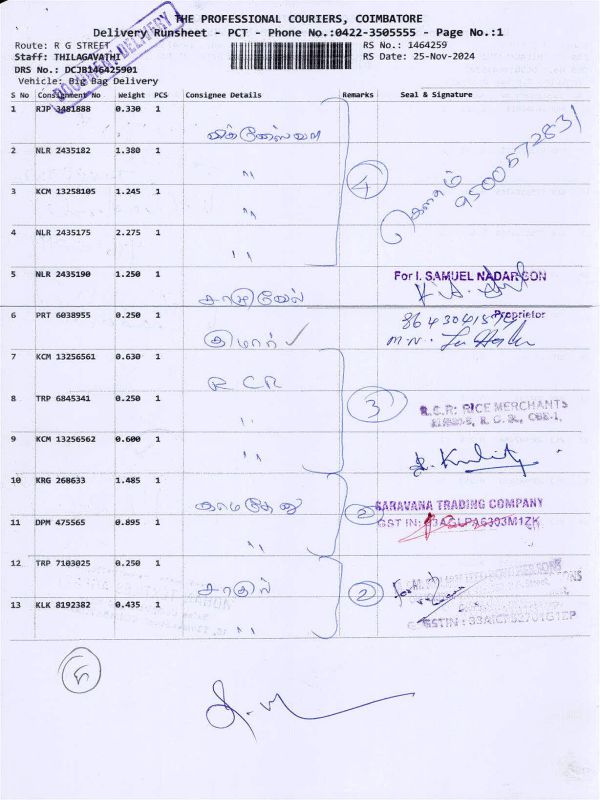 THE PROFESSIONAL COURIERS, COIMBATORE
Delivery Runsheet - PCT - Phone No.:0422-3505555 - Page No.:1
Route: R G STREET
RS No.: 1464259
Staff: THILAGAVATHI
RS Date: 25-Nov-2024
DRS No.: DCJB146425901
Vehicle: Big Bag Delivery
DOCUMENT DELIVERY
S No Consignment No Weight PCS Consignee Details Remarks Seal & Signature
1 RJP 3481888 0.330 1
2 NLR 2435182 1.380 1 〃
3 KCM 13258105 1.245 1 〃 4
4 NLR 2435175 2.275 1 〃
9500672831
5 NLR 2435190 1.250 1 சாமுவேல் For I. SAMUEL NADAR SON
Proprietor
6 PRT 6038955 0.250 1 குமார் ✓
7 KCM 13256561 0.630 1 R C R
8 TRP 6845341 0.250 1 〃 3 R.C.R. RICE MERCHANTS
9 KCM 13256562 0.600 1 〃
10 KRG 268633 1.485 1 காமதேனு 2 SARAVANA TRADING COMPANY
11 DPM 475565 0.895 1 〃 GST IN: 33AGLPA6303M1ZK
12 TRP 7103025 0.250 1
13 KLK 8192382 0.435 1 〃 2